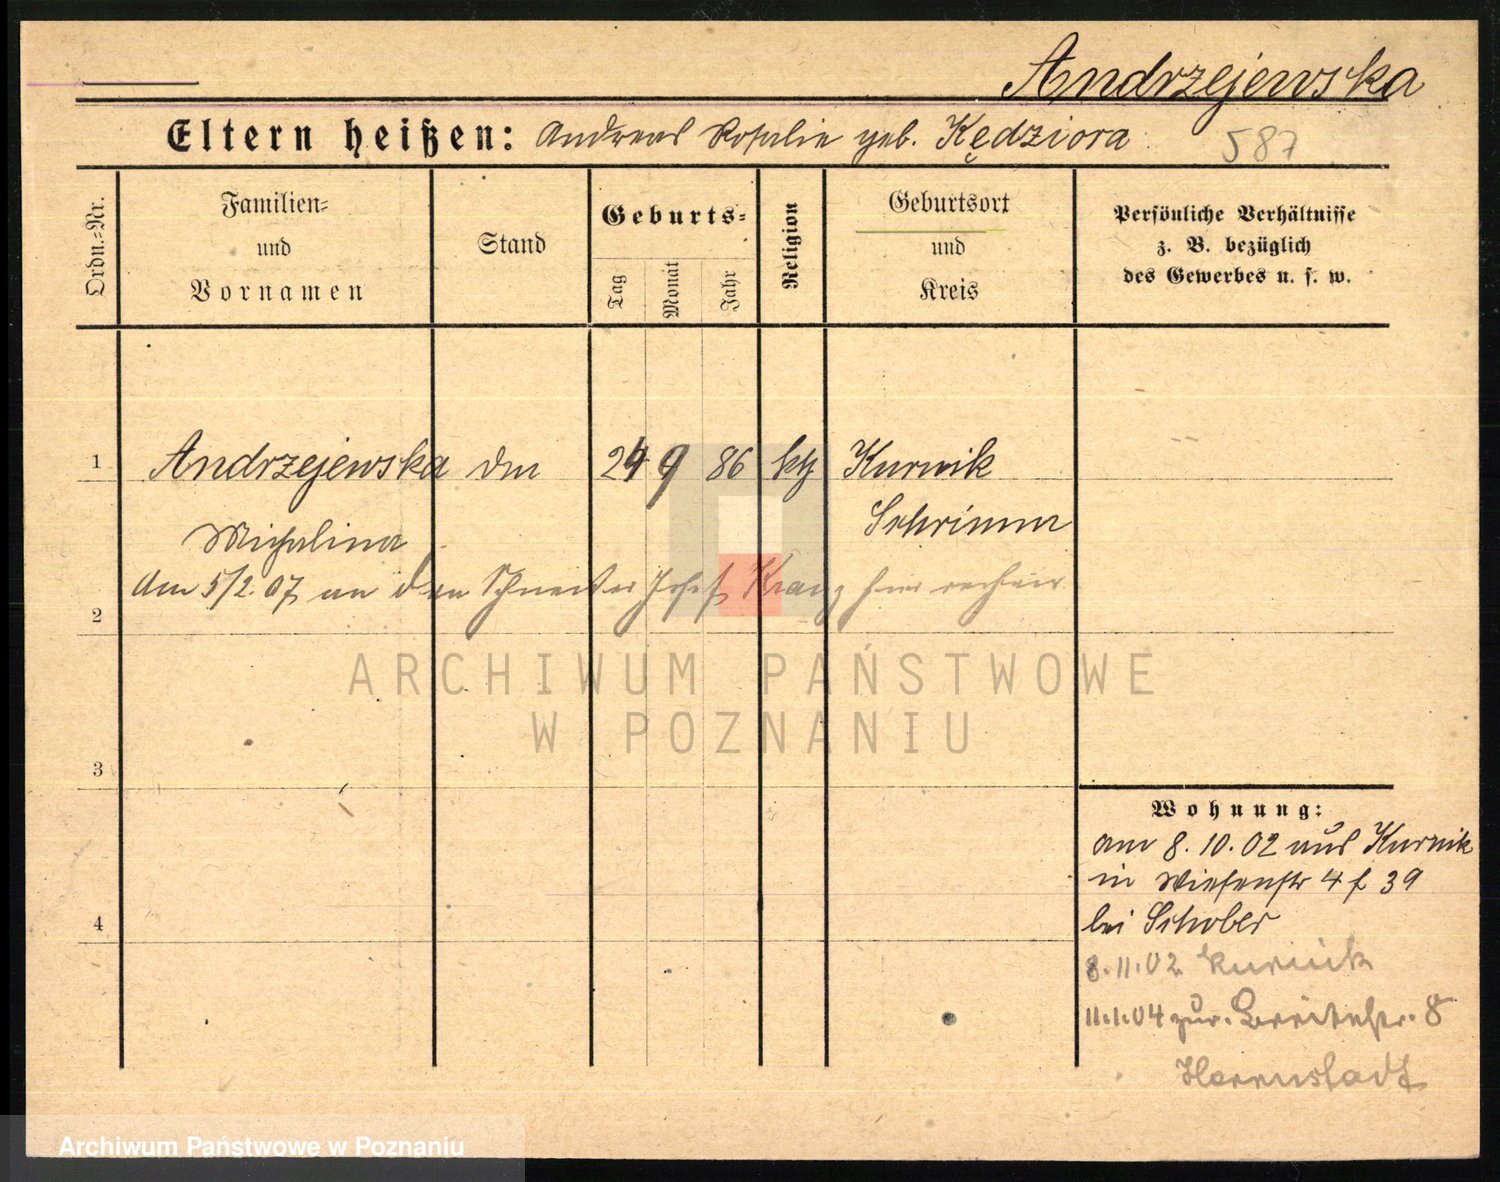 Andrzejewska
Eltern heißen: Andreas Rosalie geb. Kędziora 587
Ordn.-Nr.
Familien-
und
Vornamen
Stand
Geburts-
Tag
Monat
Jahr
Religion
Geburtsort
und
Kreis
Persönliche Verhältnisse
z. B. bezüglich
des Gewerbes u. s. w.
1 Andrzejewska 24 9 86 Kurnik
Michalina Schrimm
am 5/2. 07 an den Schneider Josef Kranz hier
2
3
4
Wohnung:
am 8. 10. 02 aus Kurnik
in Wiesenstr 4 f 39
bei Schober
8.11.02 Kurnik
11.1.04 zur. Breitestr. 8
Herrnstadt
ARCHIWUM PAŃSTWOWE
W POZNANIU
Archiwum Państwowe w Poznaniu